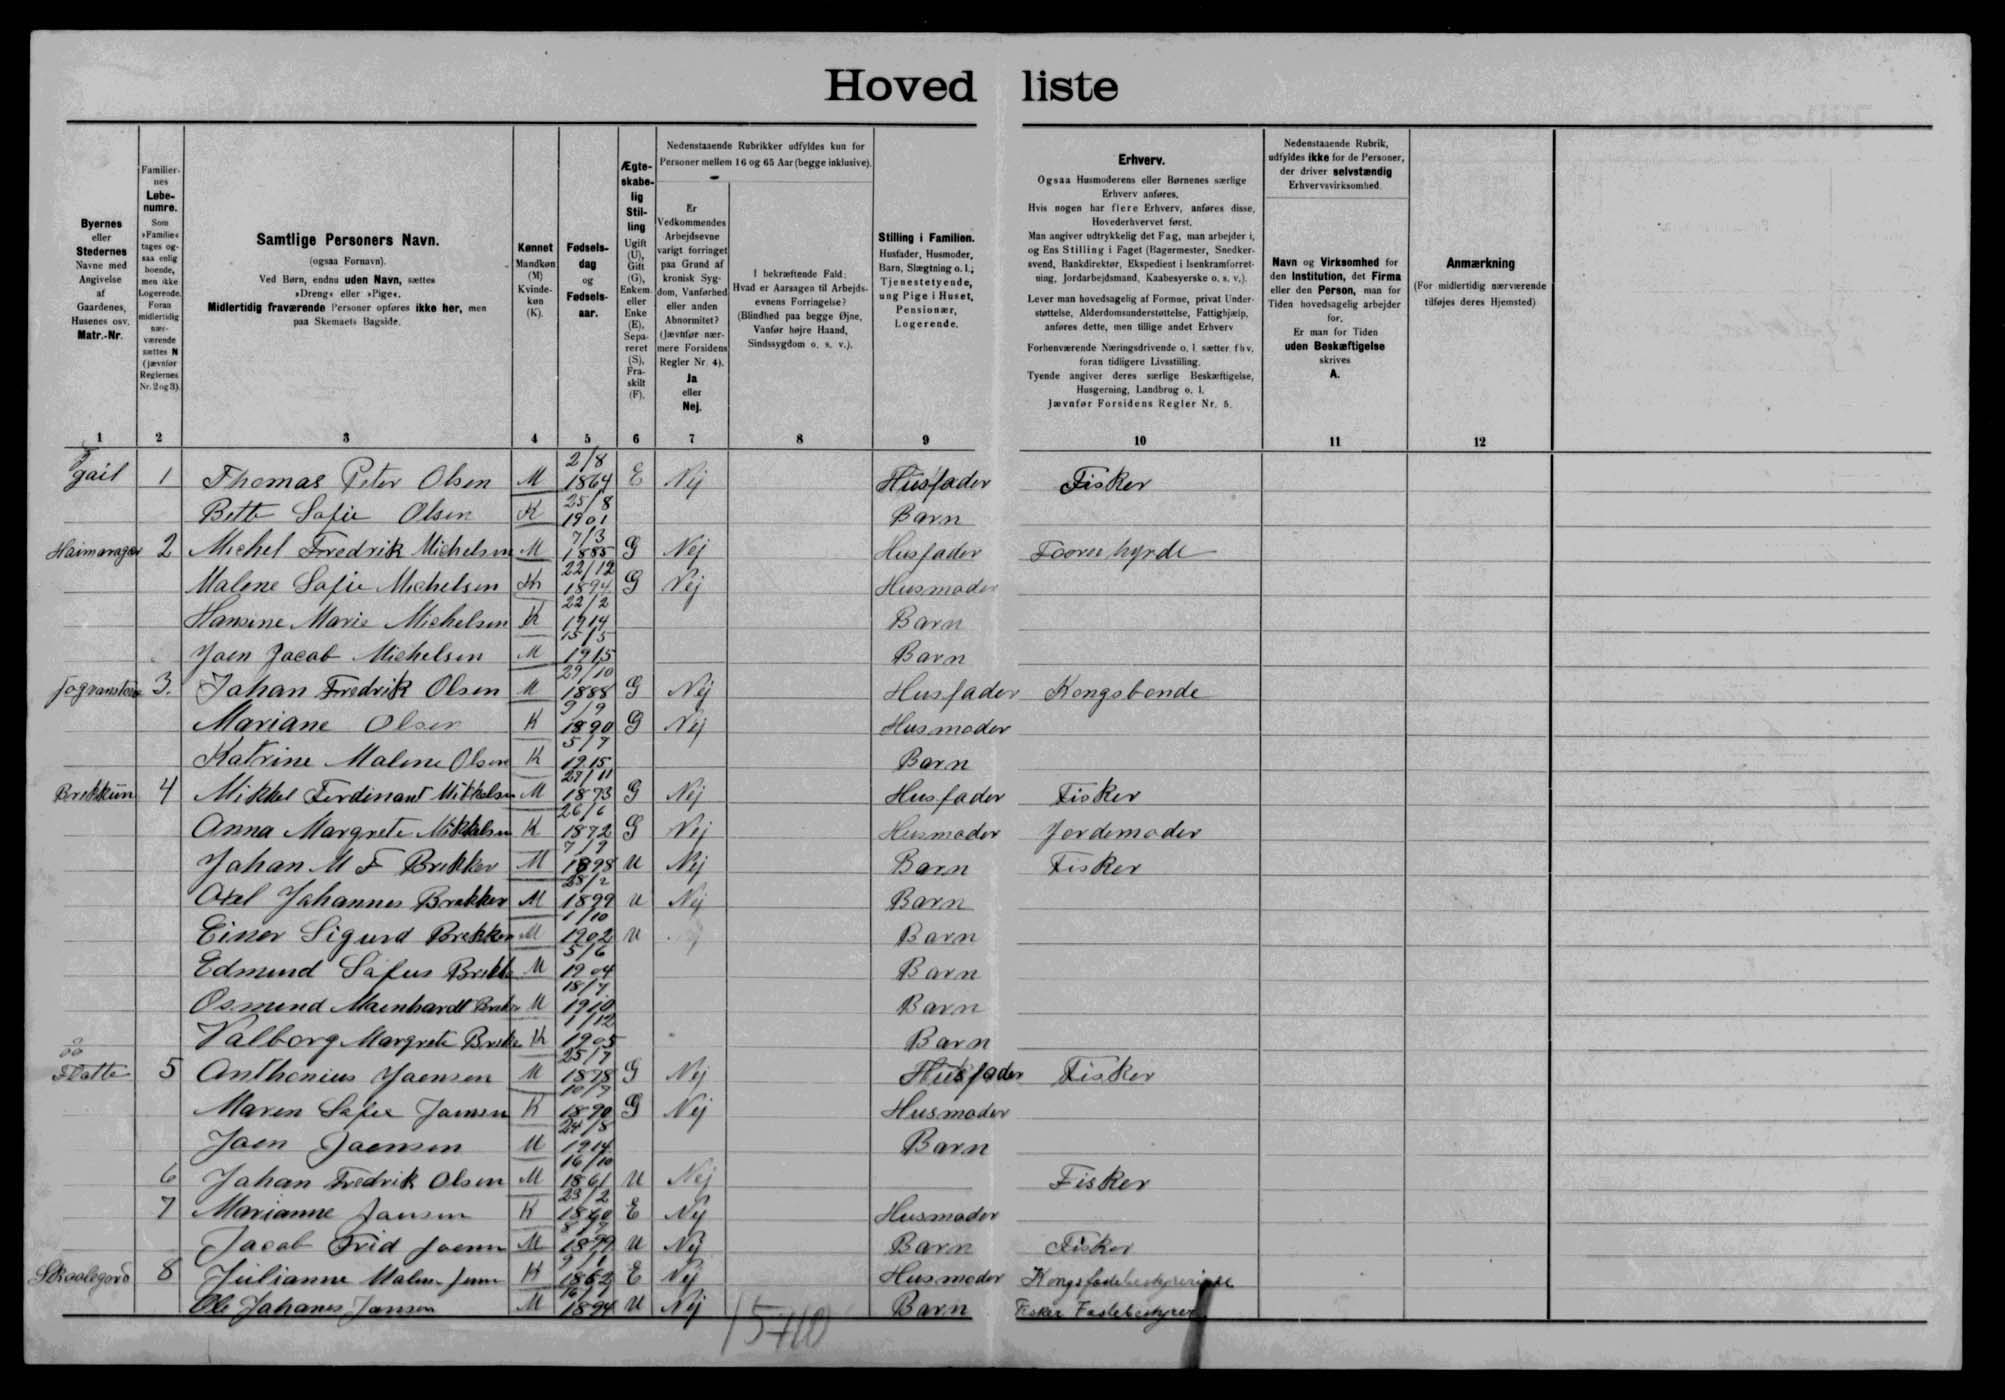 Hoved liste
Byernes eller Stedernes Navne med Angivelse af Gaardenes, Husenes osv. Matr.-Nr.
Familiernes Løbenumre. Som »Familie« tages ogsaa enlig boende, men ikke Logerende. Foran midlertidig nærværende sættes N (jævnfør Reglernes Nr. 2 og 3).
Samtlige Personers Navn.
(ogsaa Fornavn).
Ved Børn, endnu uden Navn, sættes »Dreng« eller »Pige«.
Midlertidig fraværende Personer opføres ikke her, men paa Skemaets Bagside.
Kønnet Mandkøn (M) Kvindekøn (K).
Fødselsdag og Fødselsaar.
Ægteskabelig Stilling Ugift (U), Gift (G), Enkem. eller Enke (E), Separeret (S), Fraskilt (F).
Nedenstaaende Rubrikker udfyldes kun for Personer mellem 16 og 65 Aar (begge inklusive).
Er Vedkommendes Arbejdsevne varigt forringet paa Grund af kronisk Sygdom, Vanførhed eller anden Abnormitet? (Jævnfør nærmere Forsidens Regler Nr. 4). Ja eller Nej.
I bekræftende Fald: Hvad er Aarsagen til Arbejdsevnens Forringelse? (Blindhed paa begge Øjne, Vanfør højre Haand, Sindssygdom o. s. v.).
Stilling i Familien. Husfader, Husmoder, Barn, Slægtning o. l.; Tjenestetyende, ung Pige i Huset, Pensionær, Logerende.
Erhverv.
Ogsaa Husmoderens eller Børnenes særlige Erhverv anføres.
Hvis nogen har flere Erhverv, anføres disse, Hovederhvervet først.
Man angiver udtrykkelig det Fag, man arbejder i, og Ens Stilling i Faget (Bagermester, Snedkersvend, Bankdirektør, Ekspedient i Isenkramforretning, Jordarbejdsmand, Kaabesyerske o. s. v.).
Lever man hovedsagelig af Formue, privat Understøttelse, Alderdomsunderstøttelse, Fattighjælp, anføres dette, men tillige andet Erhverv
Forhenværende Næringsdrivende o. l. sætter fhv. foran tidligere Livsstilling.
Tyende angiver deres særlige Beskæftigelse, Husgerning, Landbrug o. l.
Jævnfør Forsidens Regler Nr. 5.
Nedenstaaende Rubrik, udfyldes ikke for de Personer, der driver selvstændig Erhvervsvirksomhed.
Navn og Virksomhed for den Institution, det Firma eller den Person, man for Tiden hovedsagelig arbejder for.
Er man for Tiden uden Beskæftigelse skrives A.
Anmærkning
(For midlertidig nærværende tilføjes deres Hjemsted)
1 2 3 4 5 6 7 8 9 10 11 12
1 Thomas Peter Olsen M 2/8 1864 E Nej Husfader Fisker
Sofie Olsen K 25/8 1901 Barn
2 Michel Fredrik Michelsen M 7/3 1885 G Nej Husfader
Malene Sofie Michelsen K 22/12 1894 G Nej Husmoder
Hansine Marie Michelsen K 22/2 1914 Barn
Joen Jacob Michelsen M 15/5 1915 Barn
3. Johan Fredrik Olsen M 29/10 1888 G Nej Husfader Kongsbonde
Mariane Olsen K 9/9 1890 G Nej Husmoder
Katrine Malene Olsen K 5/7 1915 Barn
4 Mikkel Ferdinant Mikkelsen M 1873 G Nej Husfader Fisker
Anna Margrete Mikkelsen K 26/6 1872 G Nej Husmoder Jordemoder
Johan M F Brekker M 7/9 1898 U Nej Barn Fisker
Axel Johannes Brekker M 1899 U Nej Barn
Einer Sigurd Brekker M 1/10 1902 U Barn
Edmund Sofus M 5/6 1904 Barn
Osmund Mainhardt M 18/7 1910 Barn
Valborg Margrete K 1/12 1905 Barn
Flatte 5 Anthonius Joensen M 25/7 1878 G Nej Husfader Fisker
Maren Sofie K 10/7 1890 G Nej Husmoder
Joen Joensen M 24/8 1914 Barn
6 Johan Fredrik Olsen M 16/10 1861 U Nej Fisker
7 Marianne K 23/2 E Nej Husmoder
Jacob M 1899 U Nej Barn Fisker
8 Julianne K 9/1 1862 E Nej Husmoder
Ole Johanes M 1894 U Nej Barn Fisker